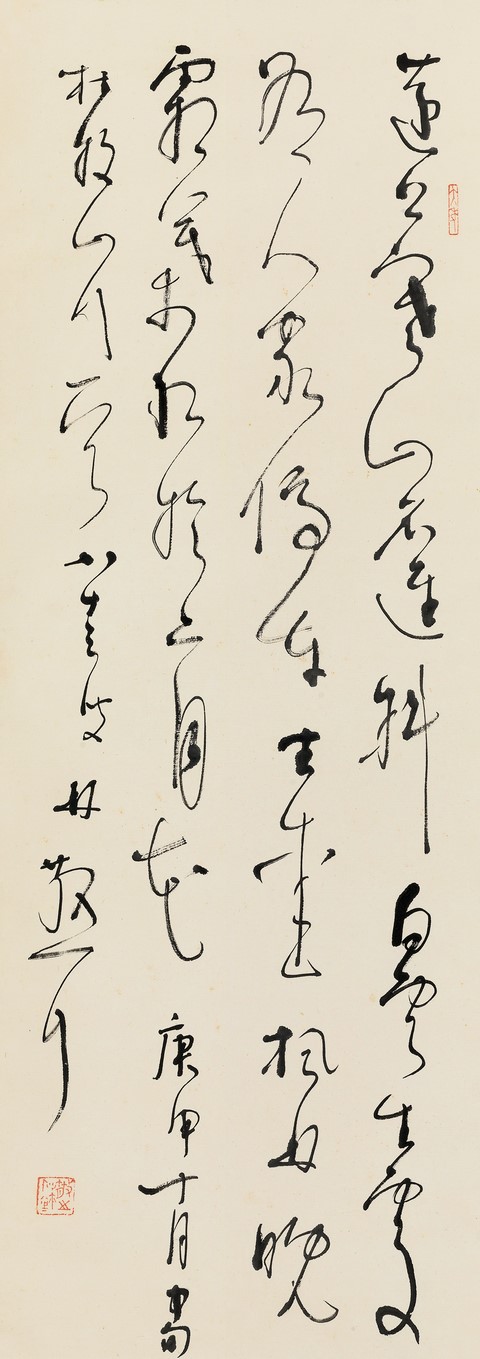 遠上寒山石逕斜白雲生處
有人家停車坐愛楓林晚
霜葉紅於二月花庚申十月書
杜牧山行一首八十三叟林散耳